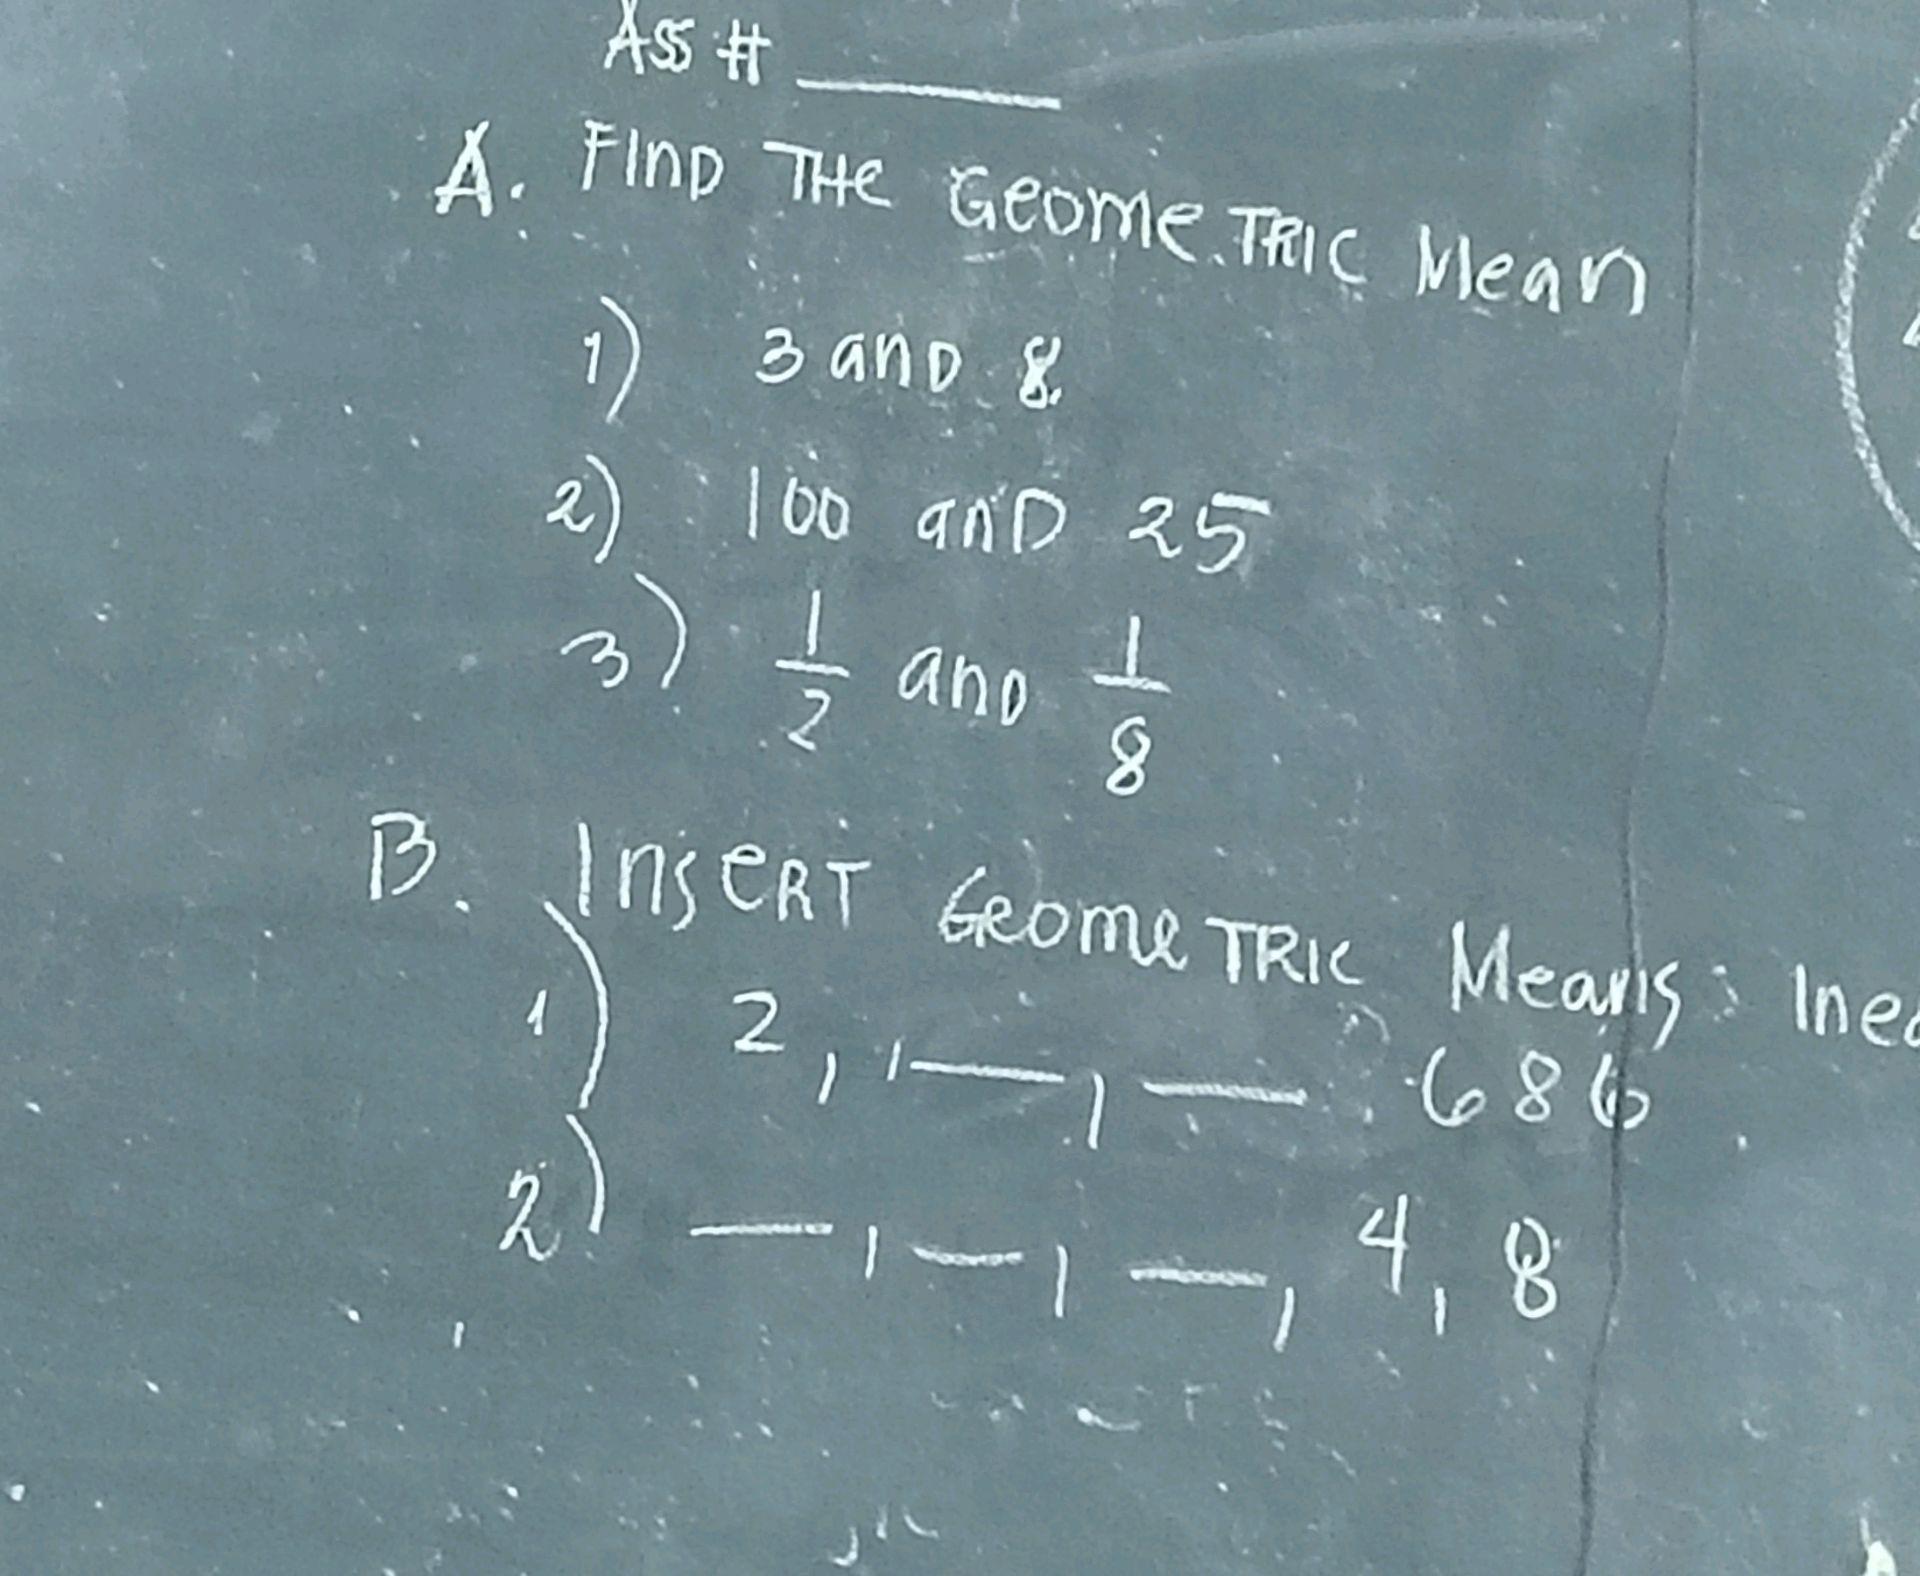 Ass # ____
A. FIND THE GEOMETRIC Mean
1) 3 and 8
2) 100 and 25
3) 1/2 and 1/8
B. INSERT GEOMETRIC Means:
1) 2, ___, ___ 686
2) ___, ___, ___, 4, 8